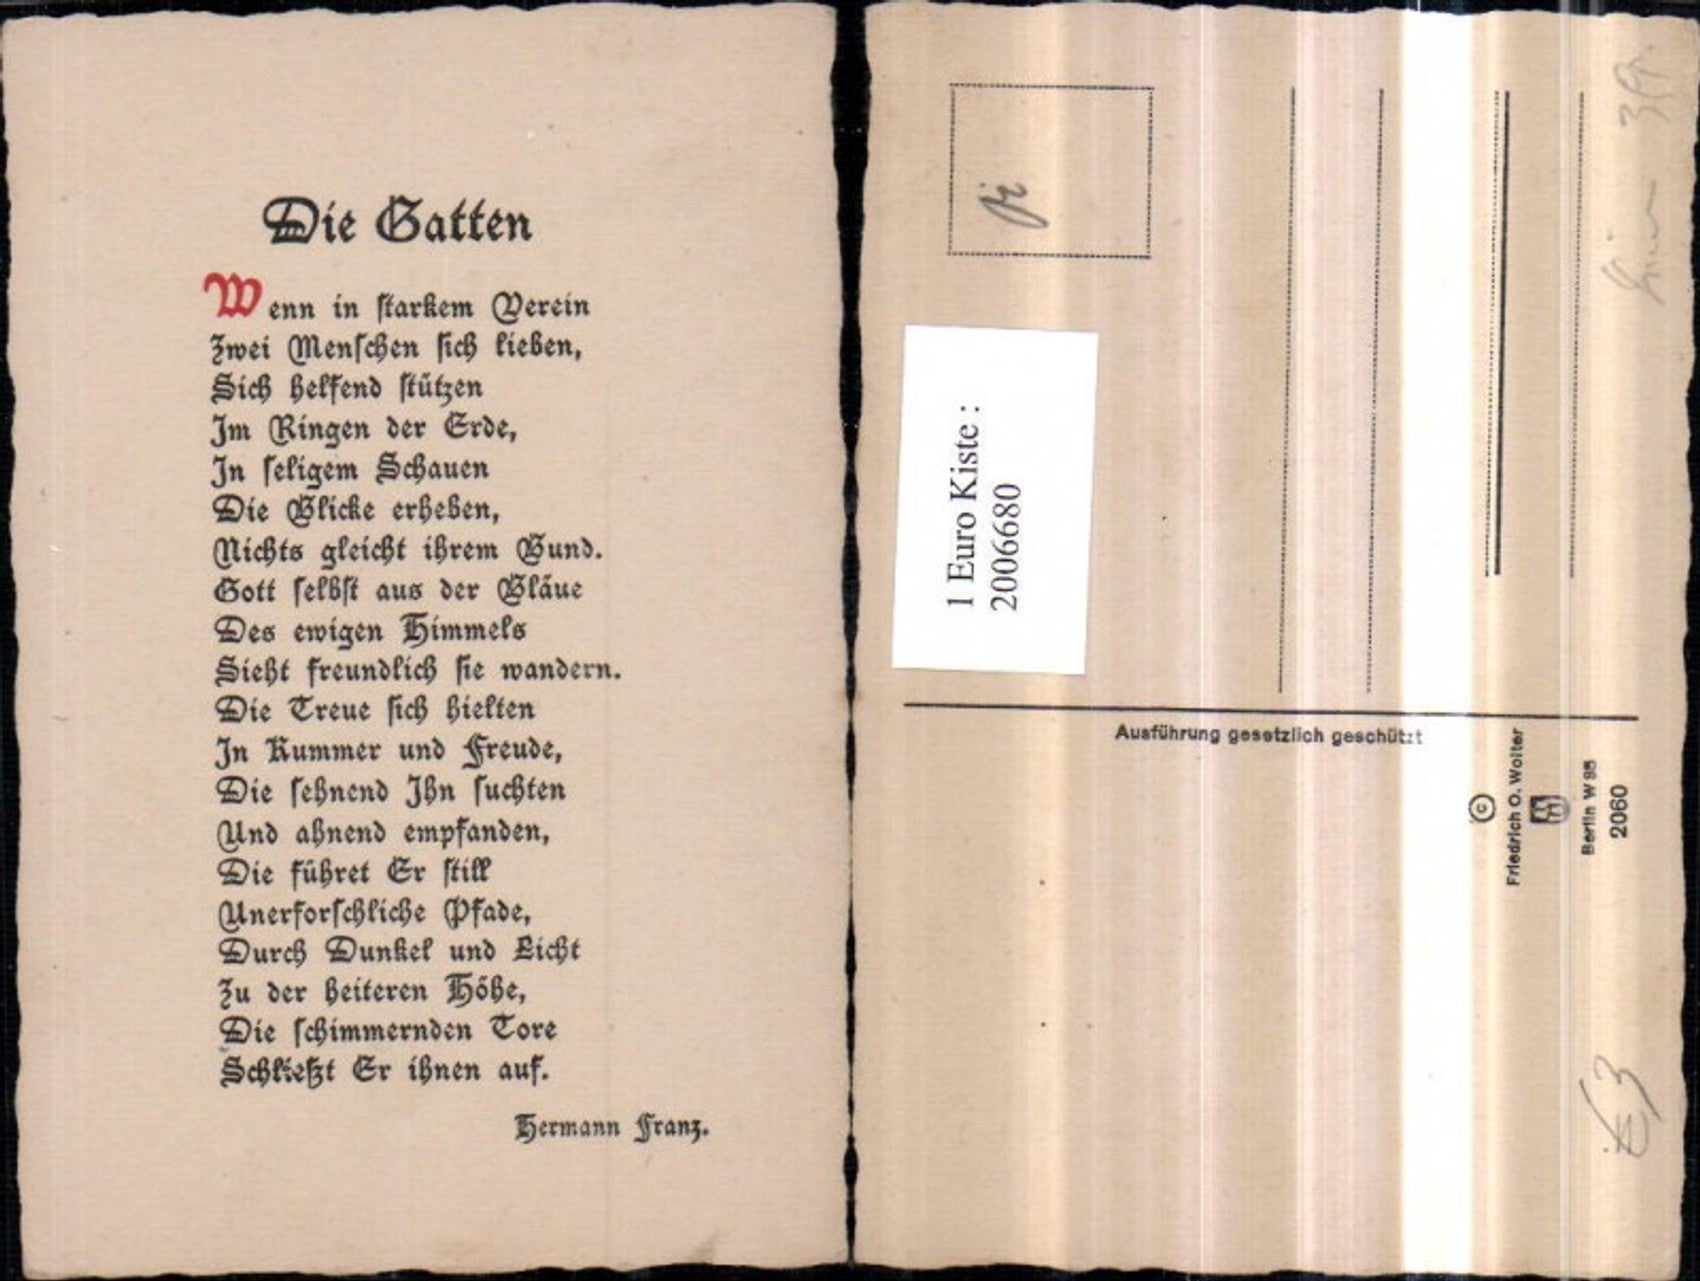 Die Gatten
Wenn in starkem Verein
Zwei Menschen sich lieben,
Sich helfend stützen
Im Ringen der Erde,
In seligem Schauen
Die Blicke erheben,
Nichts gleicht ihrem Bund.
Gott selbst aus der Bläue
Des ewigen Himmels
Sieht freundlich sie wandern.
Die Treue sich hielten
In Kummer und Freude,
Die sehnend Ihn suchten
Und ahnend empfanden,
Die führet Er still
Unerforschliche Pfade,
Durch Dunkel und Licht
Zu der heiteren Höhe,
Die schimmernden Tore
Schließt Er ihnen auf.
Hermann Franz.
1 Euro Kiste :
2006680
Ausführung gesetzlich geschützt
©
Friedrich O. Wolter
Berlin W 95
2060